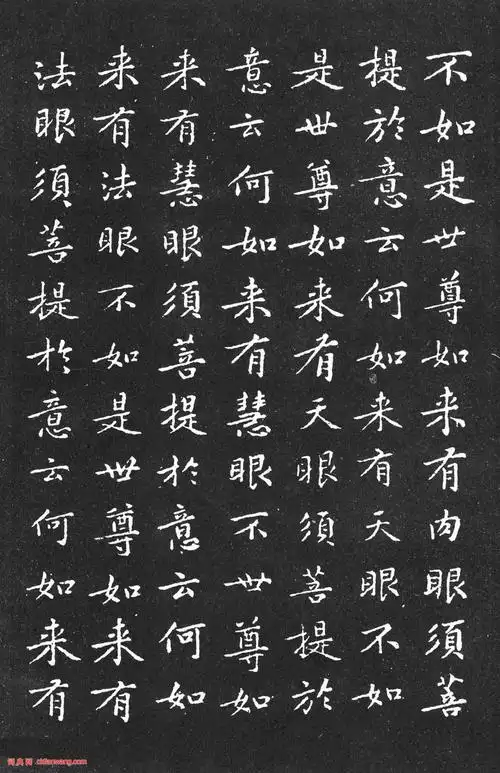 不如是世尊如来有肉眼須菩
提於意云何如来有天眼不如
是世尊如来有天眼須菩提於
意云何如来有慧眼不世尊如
来有慧眼須菩提於意云何如
来有法眼不如是世尊如来有
法眼須菩提於意云何如来有
词典网:cidianwang.com